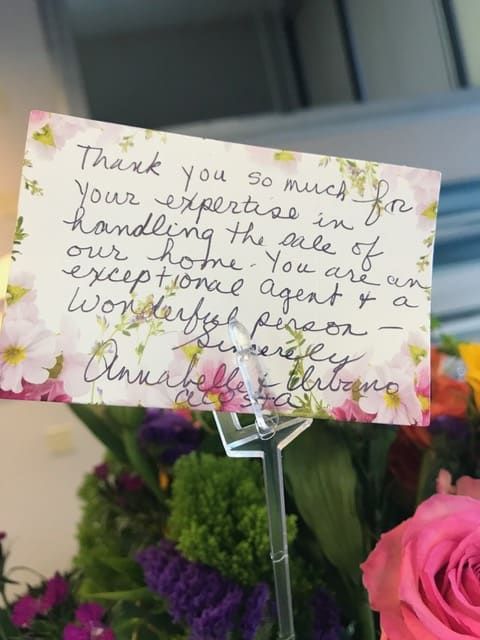 Thank you so much for
your expertise in
handling the sale of
our home. You are an
exceptional agent & a
wonderful person —
Sincerely
Annabelle & Urbano